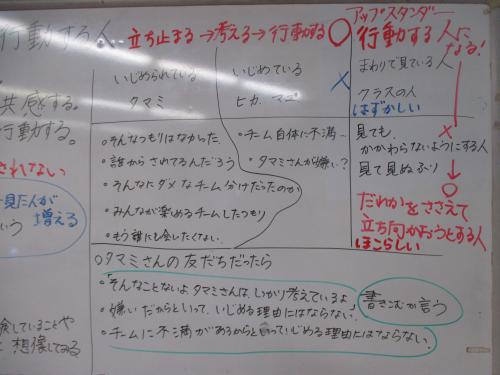 行動する人
立ち止まる→考える→行動する
アップスタンダー
行動する人になる!
共感する。
行動する。
されない
見た人が
増える
いう
していることや
想像してみる
いじめられている
タマミ
いじめている
ヒカ、マユ
まわりで見ている人
クラスの人
はずかしい
・そんなつもりはなかった。
・誰からされてるんだろう
・そんなにダメなチーム分けだったのか
・みんなが楽めるチームしたつもり
・もう誰にも会いたくない。
・チーム自体に不満〜
・タマミさんが嫌い?
見ても、
かかわらないようにする人
見て見ぬふり
だれかをささえて
立ち向かおうとする人
ほこらしい
○タマミさんの友だちだったら
・そんなことないよ。タマミさんは、しっかり考えているよ。
・嫌いだからといって、いじめる理由にはならない。
・チームに不満があるからといっていじめる理由にはならない。
書きこむか言う